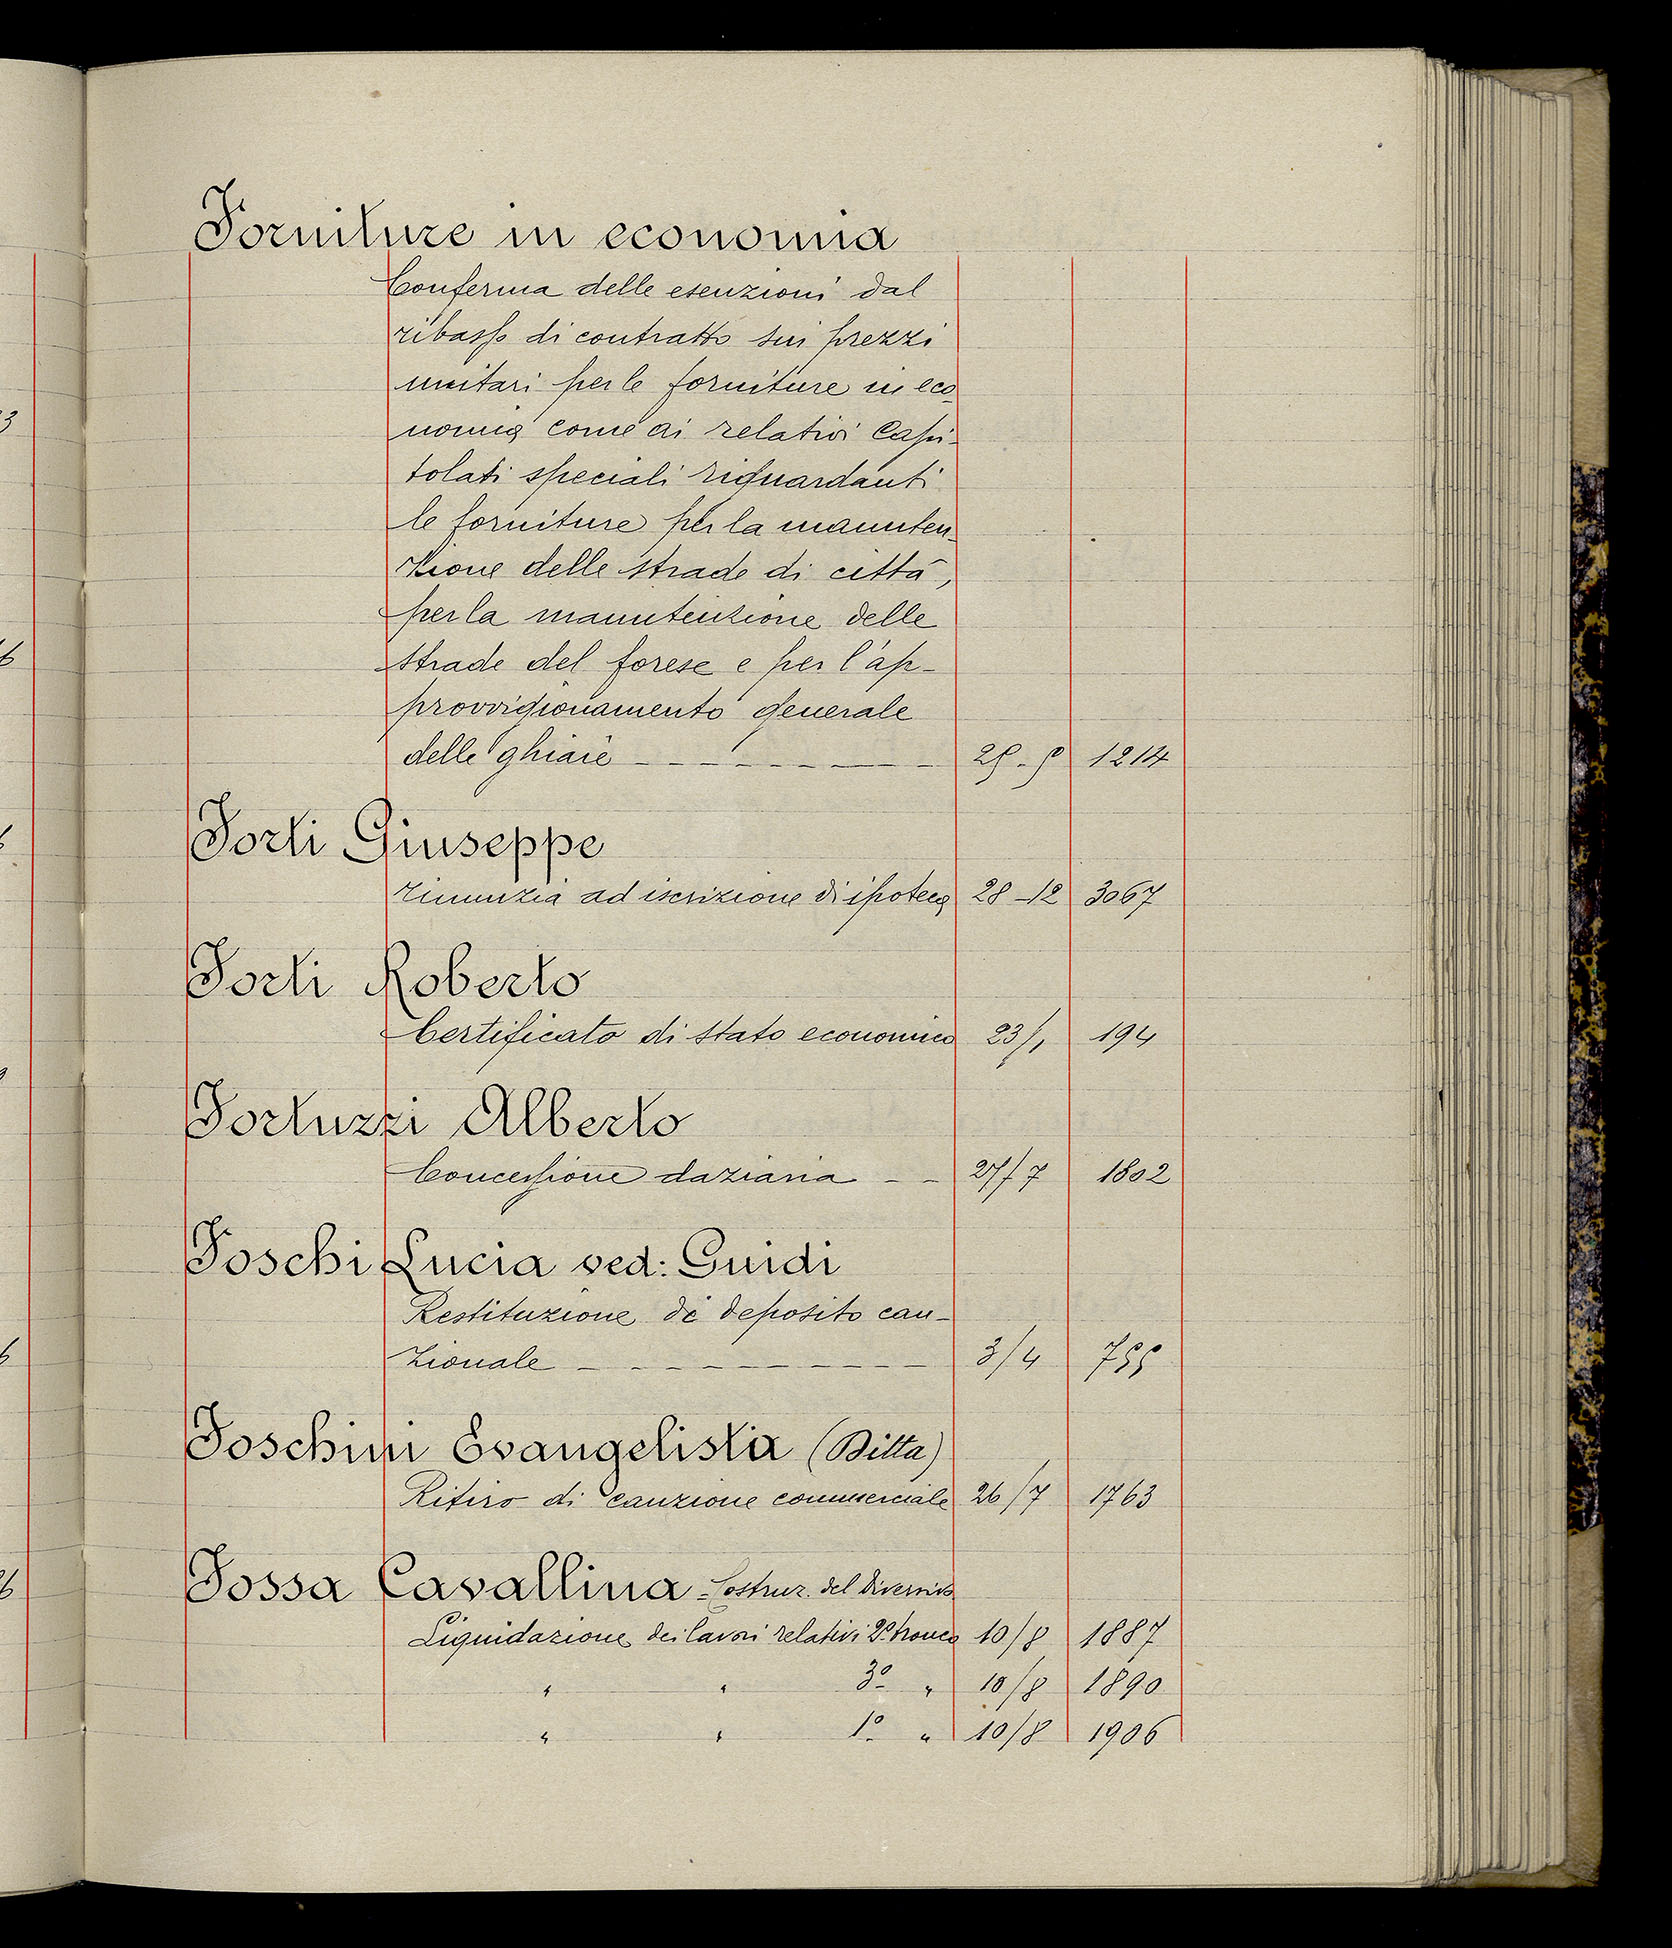 Forniture in economia
Conferma delle esenzioni dal
ribasso di contratto sui prezzi
unitari per le forniture in eco-
nomia come ai relativi Capi-
tolati speciali riguardanti
le forniture per la manuten-
zione delle strade di città,
per la manutenzione delle
strade del forese e per l'ap-
provvigionamento generale
delle ghiaie 25-5 1214
Forti Giuseppe
rinunzia ad iscrizione di ipoteca 28-12 3067
Forti Roberto
Certificato di stato economico 23/1 194
Fortuzzi Alberto
Concessione daziaria 27/7 1802
Foschi Lucia ved: Guidi
Restituzione di deposito cau-
zionale 3/4 755
Foschini Evangelista (Ditta)
Ritiro di cauzione commerciale 26/7 1763
Fossa Cavallina - Costruz. del diversivo
Liquidazione dei lavori relativi 2º tronco 10/8 1887
" " 3º " 10/8 1890
" " 1º " 10/8 1906